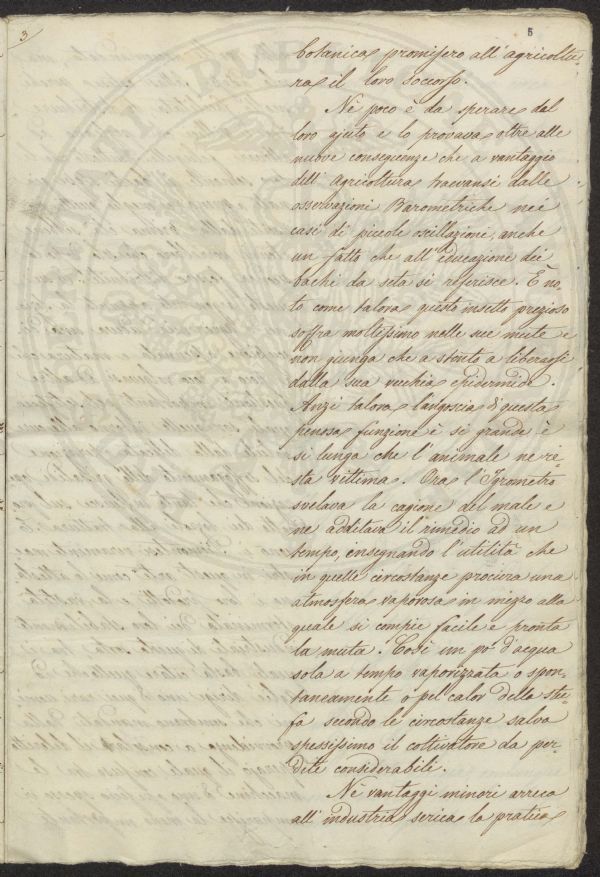 3
5
botanica promisero all'agricoltu=
ra il loro soccorso.
Nè poco è da sperare dal
loro ajuto e lo provava oltre alle
nuove conseguenze che a vantaggio
dell'agricoltura traevansi dalle
osservazioni Barometriche nei
casi di piccole oscillazioni, anche
un fatto che all'educazione dei
bachi da seta si riferisce. È no=
to come talora questo insetto prezioso
soffra moltissimo nelle sue mute e
non giunga che a stento a liberarsi
dalla sua vecchia epidermide.
Anzi talora l'angoscia di questa
penosa funzione è sì grande è
sì lunga che l'animale ne re=
sta vittima. Ora l'Igrometro
svelava la cagione del male e
ne additava il rimedio ad un
tempo, insegnando l'utilità che
in quelle circostanze procura una
atmosfera vaporosa in mezzo alla
quale si compie facile e pronta
la muta. Così un po' d'acqua
sola a tempo vaporizzata o spon=
taneamente o pel calor della stu=
fa secondo le circostanze salva
spessissimo il coltivatore da per=
dite considerabili.
Nè vantaggi minori arreca
all'industria serica la pratica